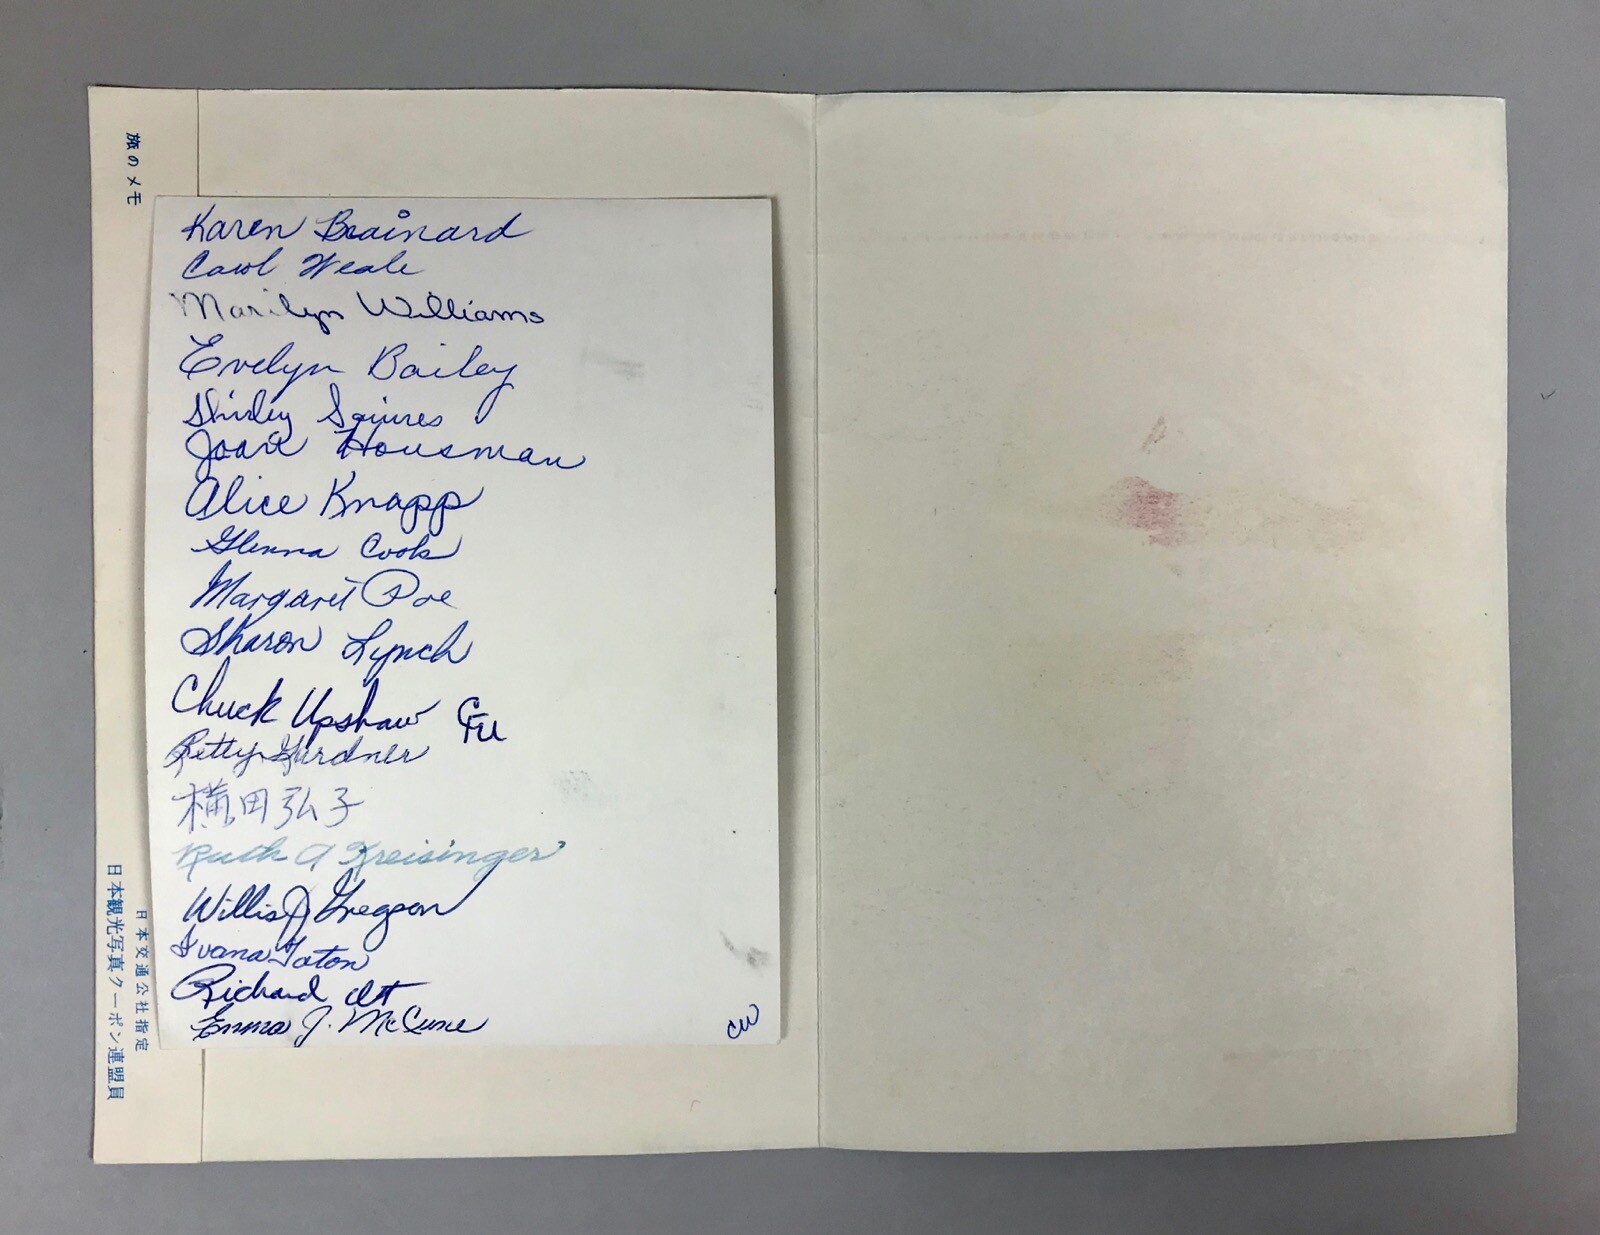 旅のメモ
Karen Brainard
Carol Weale
Marilyn Williams
Evelyn Bailey
Shirley Squires
Joan Housman
Alice Knapp
Glenna Cook
Margaret Poe
Sharon Lynch
Chuck Upshaw CFU
Betty Gardner
横田弘子
Ruth A Kreisinger
Willis J Gregson
Ivana Taton
Richard Ott
Emma J. McCune
CW
日本交通公社指定
日本観光写真クーポン連盟員